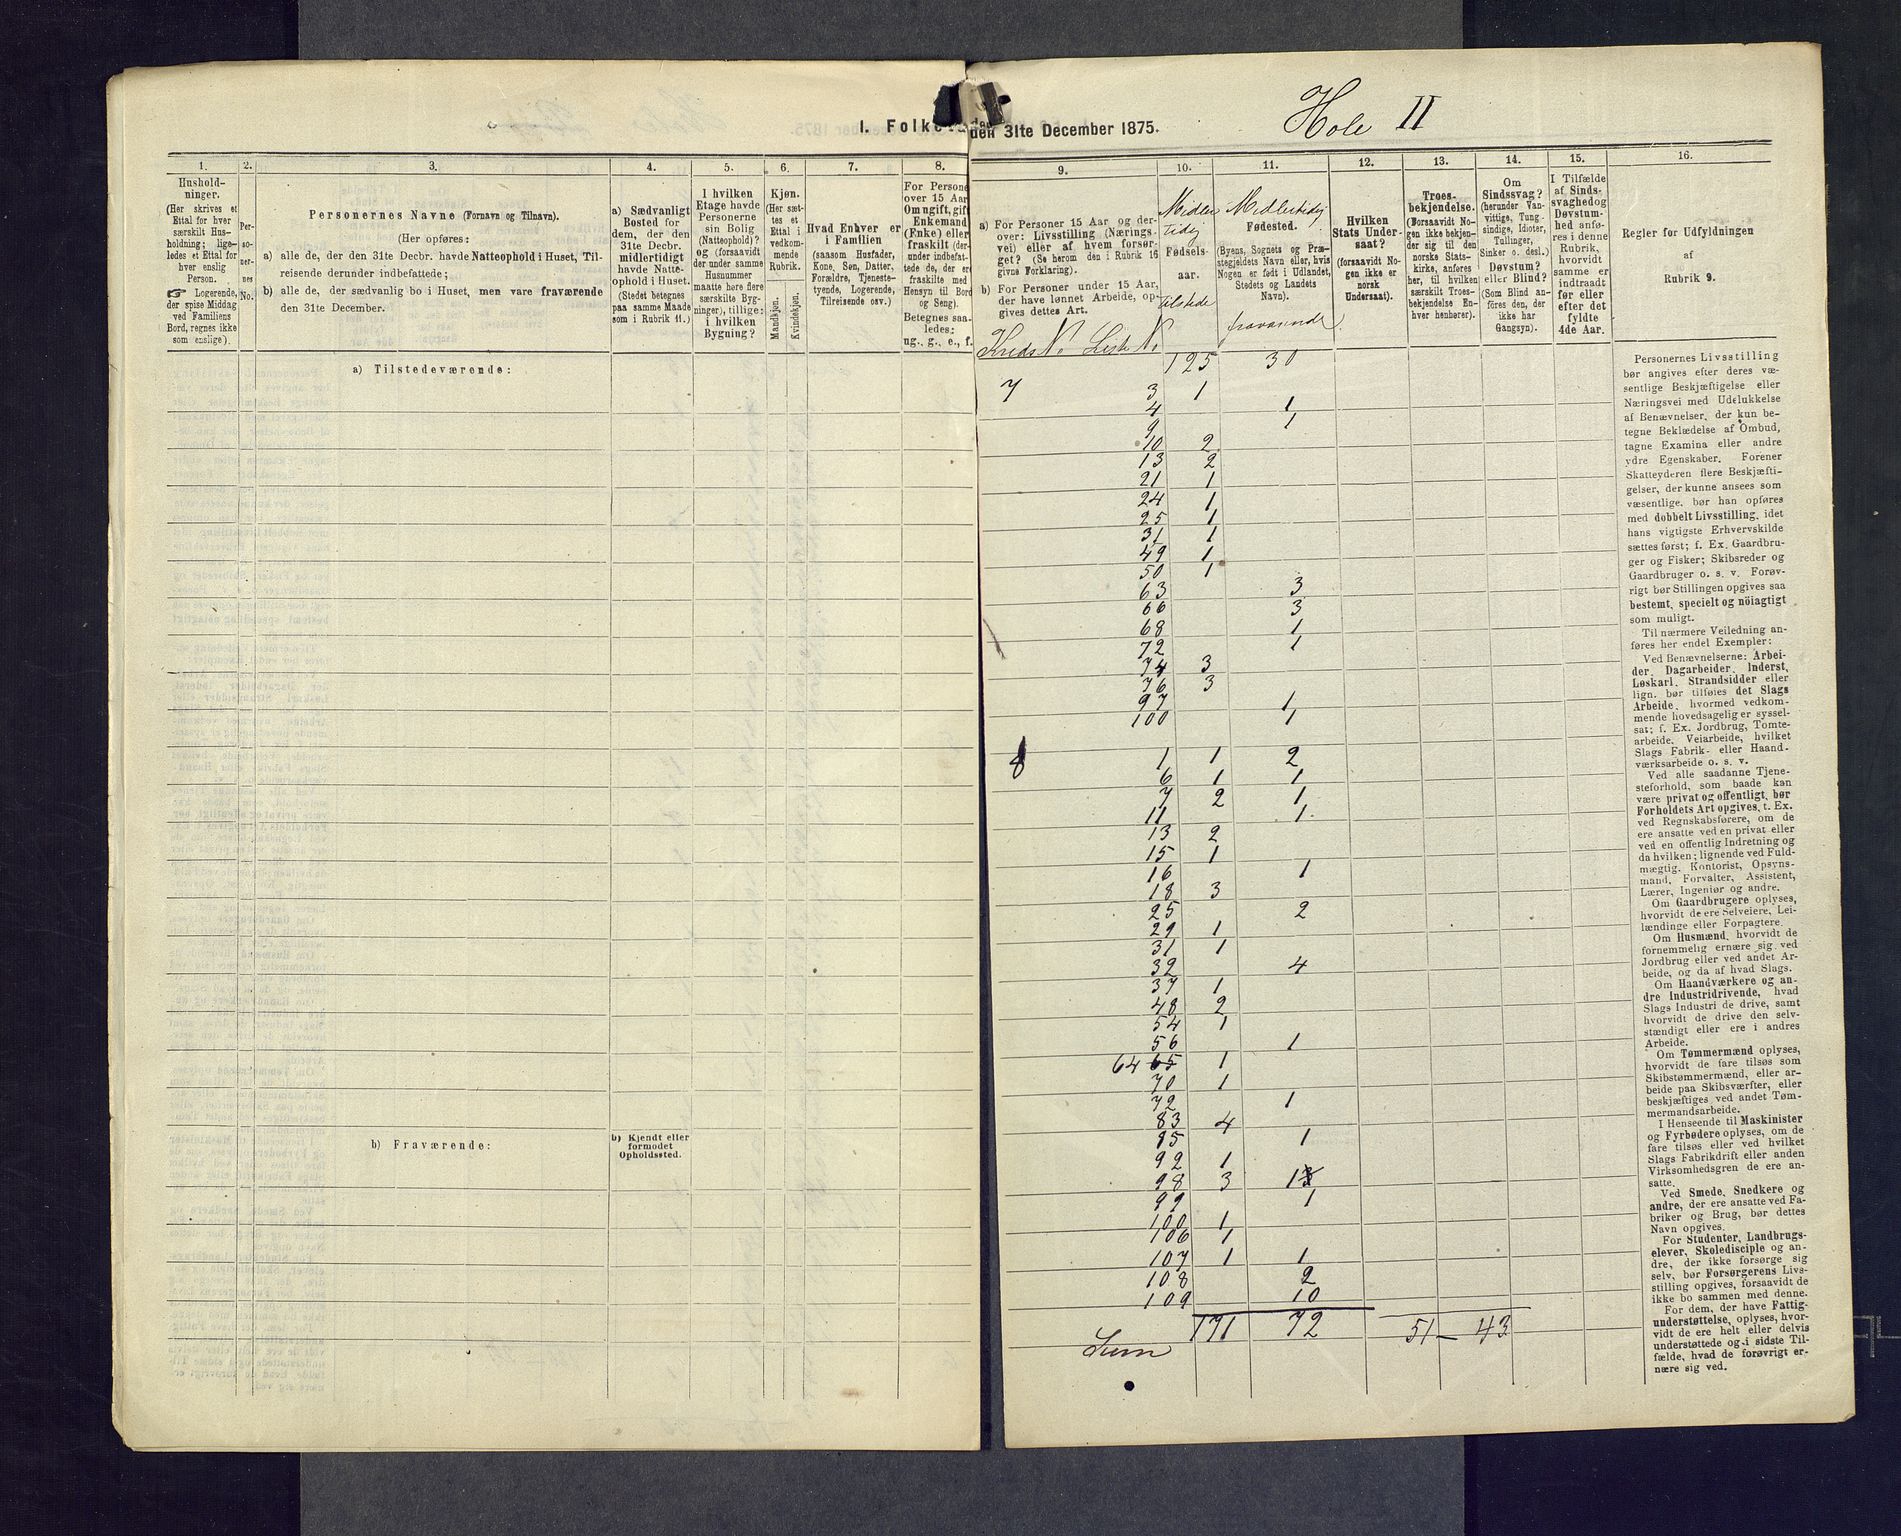 Hole II
1. Folke
den 31te December 1875.
1.
Hushold-
ninger.
(Her skrives et
Ettal for hver
særskilt Hus-
holdning; lige-
ledes et Ettal for
hver enslig
Person.
☞ Logerende,
der spise Middag
ved Familiens
Bord, regnes ikke
som enslige).
2.
Per-
so-
ner-
nes
No.
3.
Personernes Navne (Fornavn og Tilnavn).
(Her opføres:
a) alle de, der den 31te Decbr. havde Natteophold i Huset, Til-
reisende derunder indbefattede;
b) alle de, der sædvanlig bo i Huset, men vare fraværende
den 31te December.
4.
a) Sædvanligt
Bosted for
dem, der den
31te Decbr.
midlertidigt
havde Natte-
ophold i Huset.
(Stedet betegnes
paa samme Maade
som i Rubrik 11.)
5.
I hvilken
Etage havde
Personerne
sin Bolig
(Natteophold)?
og (forsaavidt
der under samme
Husnummer
maatte høre flere
særskilte Byg-
ninger), tillige:
i hvilken
Bygning?
6.
Kjøn.
(Her sæt-
tes et
Ettal i
vedkom-
mende
Rubrik.
Mandkjøn.
Kvindekjøn.
7.
Hvad Enhver er
i Familien
(saasom Husfader,
Kone, Søn, Datter,
Forældre, Tjeneste-
tyende, Logerende,
Tilreisende osv.)
8.
For Persone
over 15 Aar
Om ugift, gift
Enkemand
(Enke) eller
fraskilt (der-
under indbefat-
tede de, der er
fraskilte med
Hensyn til Bord
og Seng).
Betegnes saa-
ledes:
ug., g., e., f.
a) Tilstedeværende:
b) Fraværende:
b) Kjendt eller
formodet
Opholdssted.
9.
a) For Personer 15 Aar og der-
over: Livsstilling (Nærings-
vei) eller af hvem forsør-
get? (Se herom den i Rubrik 16
givne Forklaring).
b) For Personer under 15 Aar,
der have lønnet Arbeide, op-
gives dettes Art.
Kreds No. Liste No.
10.
Midler
tidig
Fødsels-
aar.
tilstede
11.
Midlertidig
Fødested.
(Byens, Sognets og Præ-
stegjeldets Navn eller, hvis
Nogen er født i Udlandet,
Stedets og Landets
Navn).
fraværende
12.
Hvilken
Stats Under-
saat?
(forsaavidt No-
gen ikke er
norsk
Undersaat).
13.
Troes-
bekjendelse.
(Forsaavidt No-
gen ikke bekjen-
der sig til den
norske Stats-
kirke, anføres
her, til hvilken
særskilt Troes-
bekjendelse En-
hver henhører).
14.
Om
Sindssvag?
(herunder Van-
vittige, Tung-
sindige, Idioter,
Tullinger,
Sinker o. desl.)
Døvstum?
eller Blind?
(Som Blind an-
føres den, der
ikke har
Gangsyn).
15.
I Tilfælde
af Sinds-
svaghed og
Døvstum-
hed anfø-
res i denne
Rubrik,
hvorvidt
samme er
indtraadt
før eller
efter det
fyldte
4de Aar.
16.
Regler for Udfyldningen
af
Rubrik 9.
125 30
7 3 1
4 1
9 1
10 2
13 2
21 1
24 1
25 1
31 1
49 1
50 1
63 3
66 3
68 1
72 1
74 3
76 3
97 1
100 1
8 1 1 2
6 1 1
7 2 1
11 1
13 2
15 1
16 1
18 3
25 2
29 1
31 1
32 4
37 1
48 2
54 1
56 1
64 65 1
70 1
72 1
83 4
85 1
92 1
98 3 1
99 1
100 1
106 1
107 1 1
108 2
109 10
Sum 171 72 51 – 43
Personernes Livsstilling
bør angives efter deres væ-
sentlige Beskjæftigelse eller
Næringsvei med Udelukkelse
af Benævnelser, der kun be-
tegne Beklædelse af Ombud,
tagne Examina eller andre
ydre Egenskaber. Forener
Skatteyderen flere Beskjæfti-
gelser, der kunne ansees som
væsentlige, bør han opføres
med dobbelt Livsstilling, idet
hans vigtigste Erhvervskilde
sættes først; f. Ex. Gaardbru-
ger og Fisker; Skibsreder og
Gaardbruger o. s. v. Forøv-
rigt bør Stillingen opgives saa
bestemt, specielt og nöiagtigt
som muligt.
Til nærmere Veiledning an-
føres her endel Exempler:
Ved Benævnelserne: Arbei-
der, Dagarbeider, Inderst,
Løskarl, Strandsidder eller
lign. bør tilføies det Slags
Arbeide, hvormed vedkom-
mende hovedsagelig er syssel-
sat; f. Ex. Jordbrug, Tomte-
arbeide, Veiarbeide, hvilket
Slags Fabrik- eller Haand-
værksarbeide o. s. v.
Ved alle saadanne Tjene-
steforhold, som baade kan
være privat og offentligt, bør
Forholdets Art opgives, t. Ex.
ved Regnskabsførere, om de
ere ansatte ved en privat eller
ved en offentlig Indretning og
da hvilken; lignende ved Fuld-
mægtig, Kontorist, Opsyns-
mand, Forvalter, Assistent,
Lærer, Ingeniør og andre.
Om Gaardbrugere oplyses,
hvorvidt de ere Selveiere, Lei-
lændinge eller Forpagtere.
Om Husmænd, hvorvidt de
fornemmelig ernære sig ved
Jordbrug eller ved andet Ar-
beide, og da af hvad Slags.
Om Haandværkere og an-
dre Industridrivende, hvad
Slags Industri de drive, samt
hvorvidt de drive den selv-
stændigt eller ere i andres
Arbeide.
Om Tømmermænd oplyses,
hvorvidt de fare tilsøs som
Skibstømmermænd, eller ar-
beide paa Skibsværfter, eller
beskjæftiges ved andet Tøm-
mermandsarbeide.
I Henseende til Maskinister
og Fyrbødere oplyses, om de
fare tilsøs eller ved hvilket
Slags Fabrikdrift eller anden
Virksomhedsgren de ere an-
satte.
Ved Smede, Snedkere og
andre, der ere ansatte ved Fa-
briker og Brug, bør dettes
Navn opgives.
For Studenter, Landbrugs-
elever, Skoledisciple og an-
dre, der ikke forsørge sig
selv, bør Forsørgerens Livs-
stilling opgives, forsaavidt de
ikke bo sammen med denne.
For dem, der have Fattig-
understøttelse, oplyses, hvor-
vidt de ere helt eller delvis
understøttede og i sidste Til-
fælde, hvad de forøvrigt er-
nære sig ved.